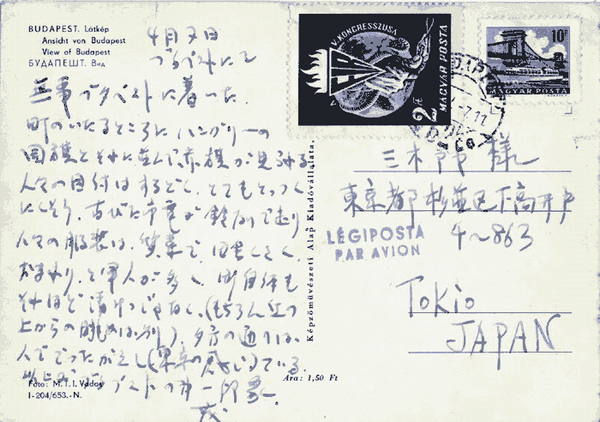 BUDAPEST. Látkép
Ansicht von Budapest
View of Budapest
БУДАПЕШТ. Вид
4月7日
ブダペストにて
三時ブダペストに着いた。
町のいたるところにハンガリーの
国旗とそれに並んで赤旗が見える
人々の目付はするどく、とてもとっつく
にくそう、古びた市電が鈴なりで走り
人々の服装は、質素で、田舎くさく、
おまわりと軍人が多く、町自体も
それほど清けつでなく、(もちろん丘の
上からの眺めは別)、夕方の通りは、
人でごったがえし(東京の感じ)ている。
以上がブダペストの第一印象。
Foto: M. T. I. Vadas
I-204/653.-N.
Ára: 1,50 Ft
Képzőművészeti Alap Kiadóvállalata.
V. KONGRESSZUSA
2 Ft
MAGYAR POSTA
10f
MAGYAR POSTA
BUDAPEST
三木 様
東京都杉並区下高井戸
4~863
LÉGIPOSTA
PAR AVION
Tokio
JAPAN